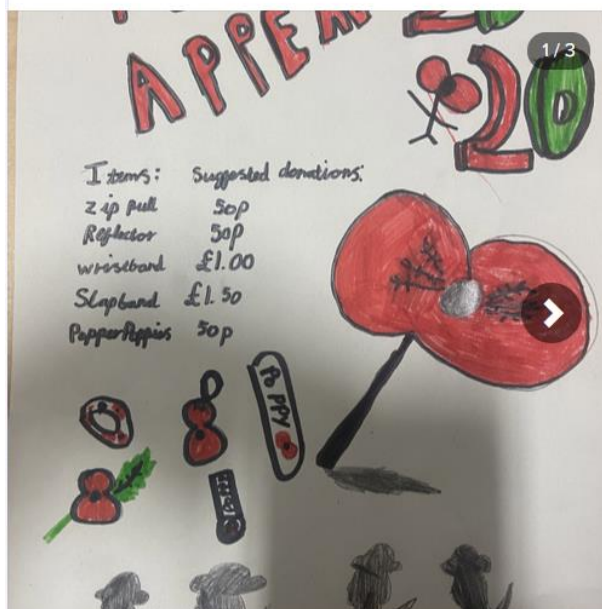 1/3
APPEA
20
20
Items: Suggested donations:
Zip pull 50p
Reflector 50p
wristband £1.00
Slapband £1.50
PapperPoppies 50p
PoPPY